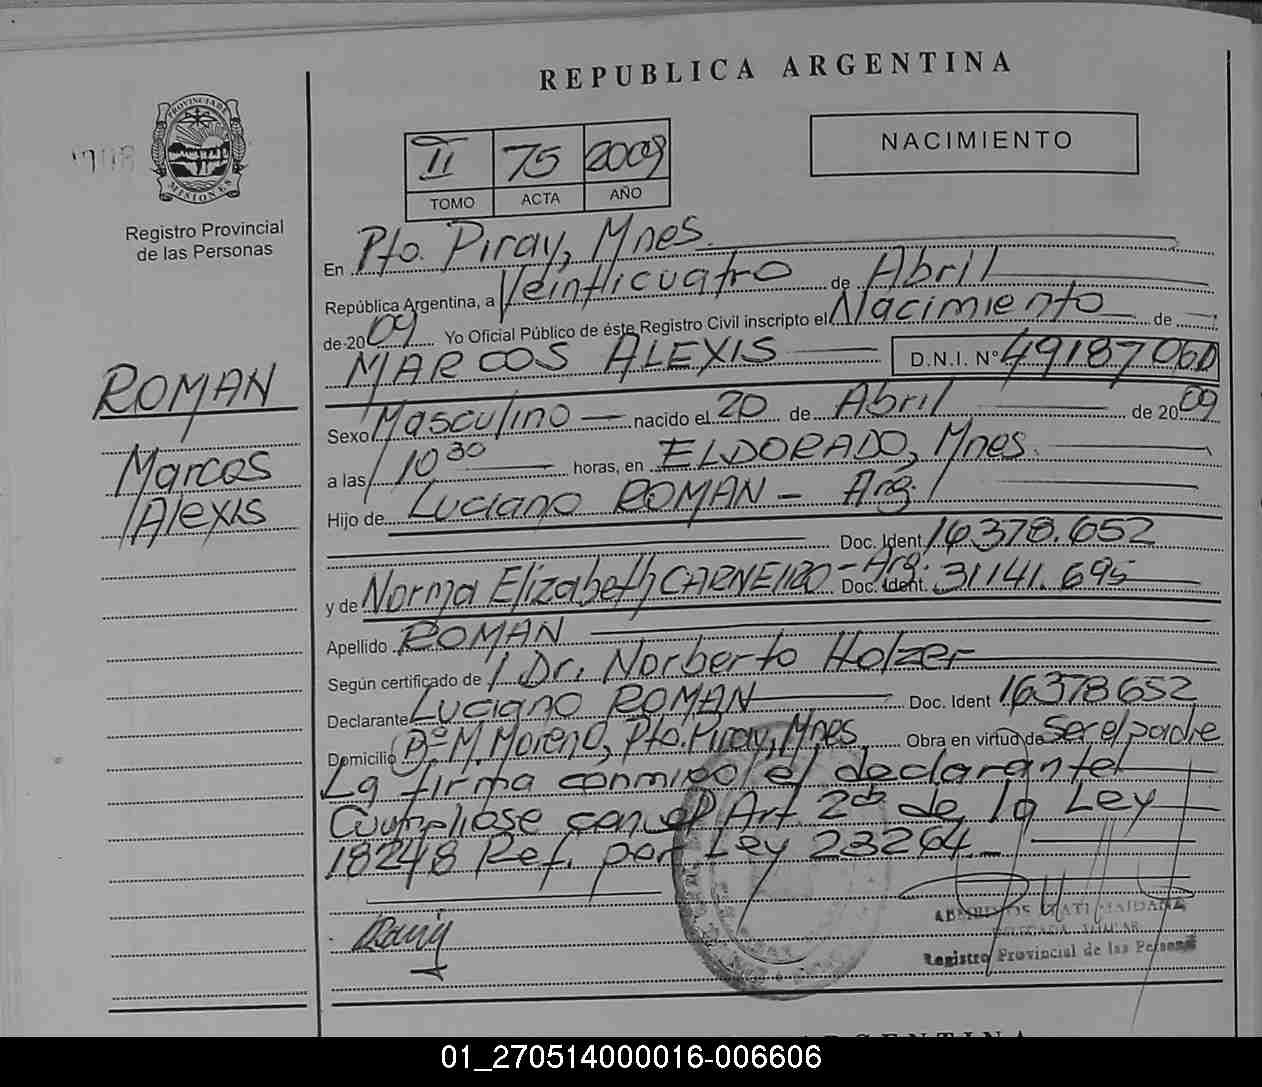 REPUBLICA ARGENTINA
PROVINCIA DE
MISIONES
Registro Provincial
de las Personas
II 75 2009
TOMO ACTA AÑO
NACIMIENTO
En Pto. Piray, Mnes.
República Argentina, a Veinticuatro de Abril
de 2009 Yo Oficial Público de éste Registro Civil inscripto el Nacimiento de
MARCOS ALEXIS D.N.I. Nº 49187060
ROMAN
Marcos
Alexis
Sexo Masculino nacido el 20 de Abril de 2009
a las 10 30 horas, en ELDORADO, Mnes.
Hijo de Luciano ROMAN - Arg.
Doc. Ident. 16.378.652
y de Norma Elizabeth CARNEIRO - Arg. Doc. Ident. 31.141.695
Apellido ROMAN
Según certificado de Dr. Norberto Holzer
Declarante Luciano ROMAN Doc. Ident 16378652
Domicilio Bº M. Moreno, Pto. Piray, Mnes. Obra en virtud de ser el padre
La firma conmigo el declarante
Cumpliose con el Art. 2do de la Ley
18248 Ref. por Ley 23264
Registro Provincial de las Personas
01_270514000016-006606